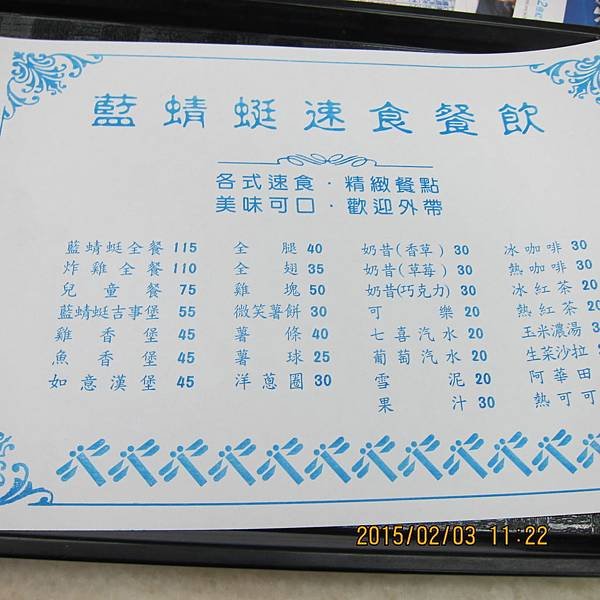 藍蜻蜓速食餐飲
各式速食·精緻餐點
美味可口·歡迎外帶
藍蜻蜓全餐 115
炸雞全餐 110
兒童餐 75
藍蜻蜓吉事堡 55
雞香堡 45
魚香堡 45
如意漢堡 45
全腿 40
全翅 35
雞塊 50
微笑薯餅 30
薯條 40
薯球 25
洋蔥圈 30
奶昔(香草) 30
奶昔(草莓) 30
奶昔(巧克力) 30
可樂 20
七喜汽水 20
葡萄汽水 20
雪泥 20
果汁 30
冰咖啡 30
熱咖啡 30
冰紅茶 20
熱紅茶 20
玉米濃湯
生菜沙拉
阿華田
熱可可
2015/02/03 11:22